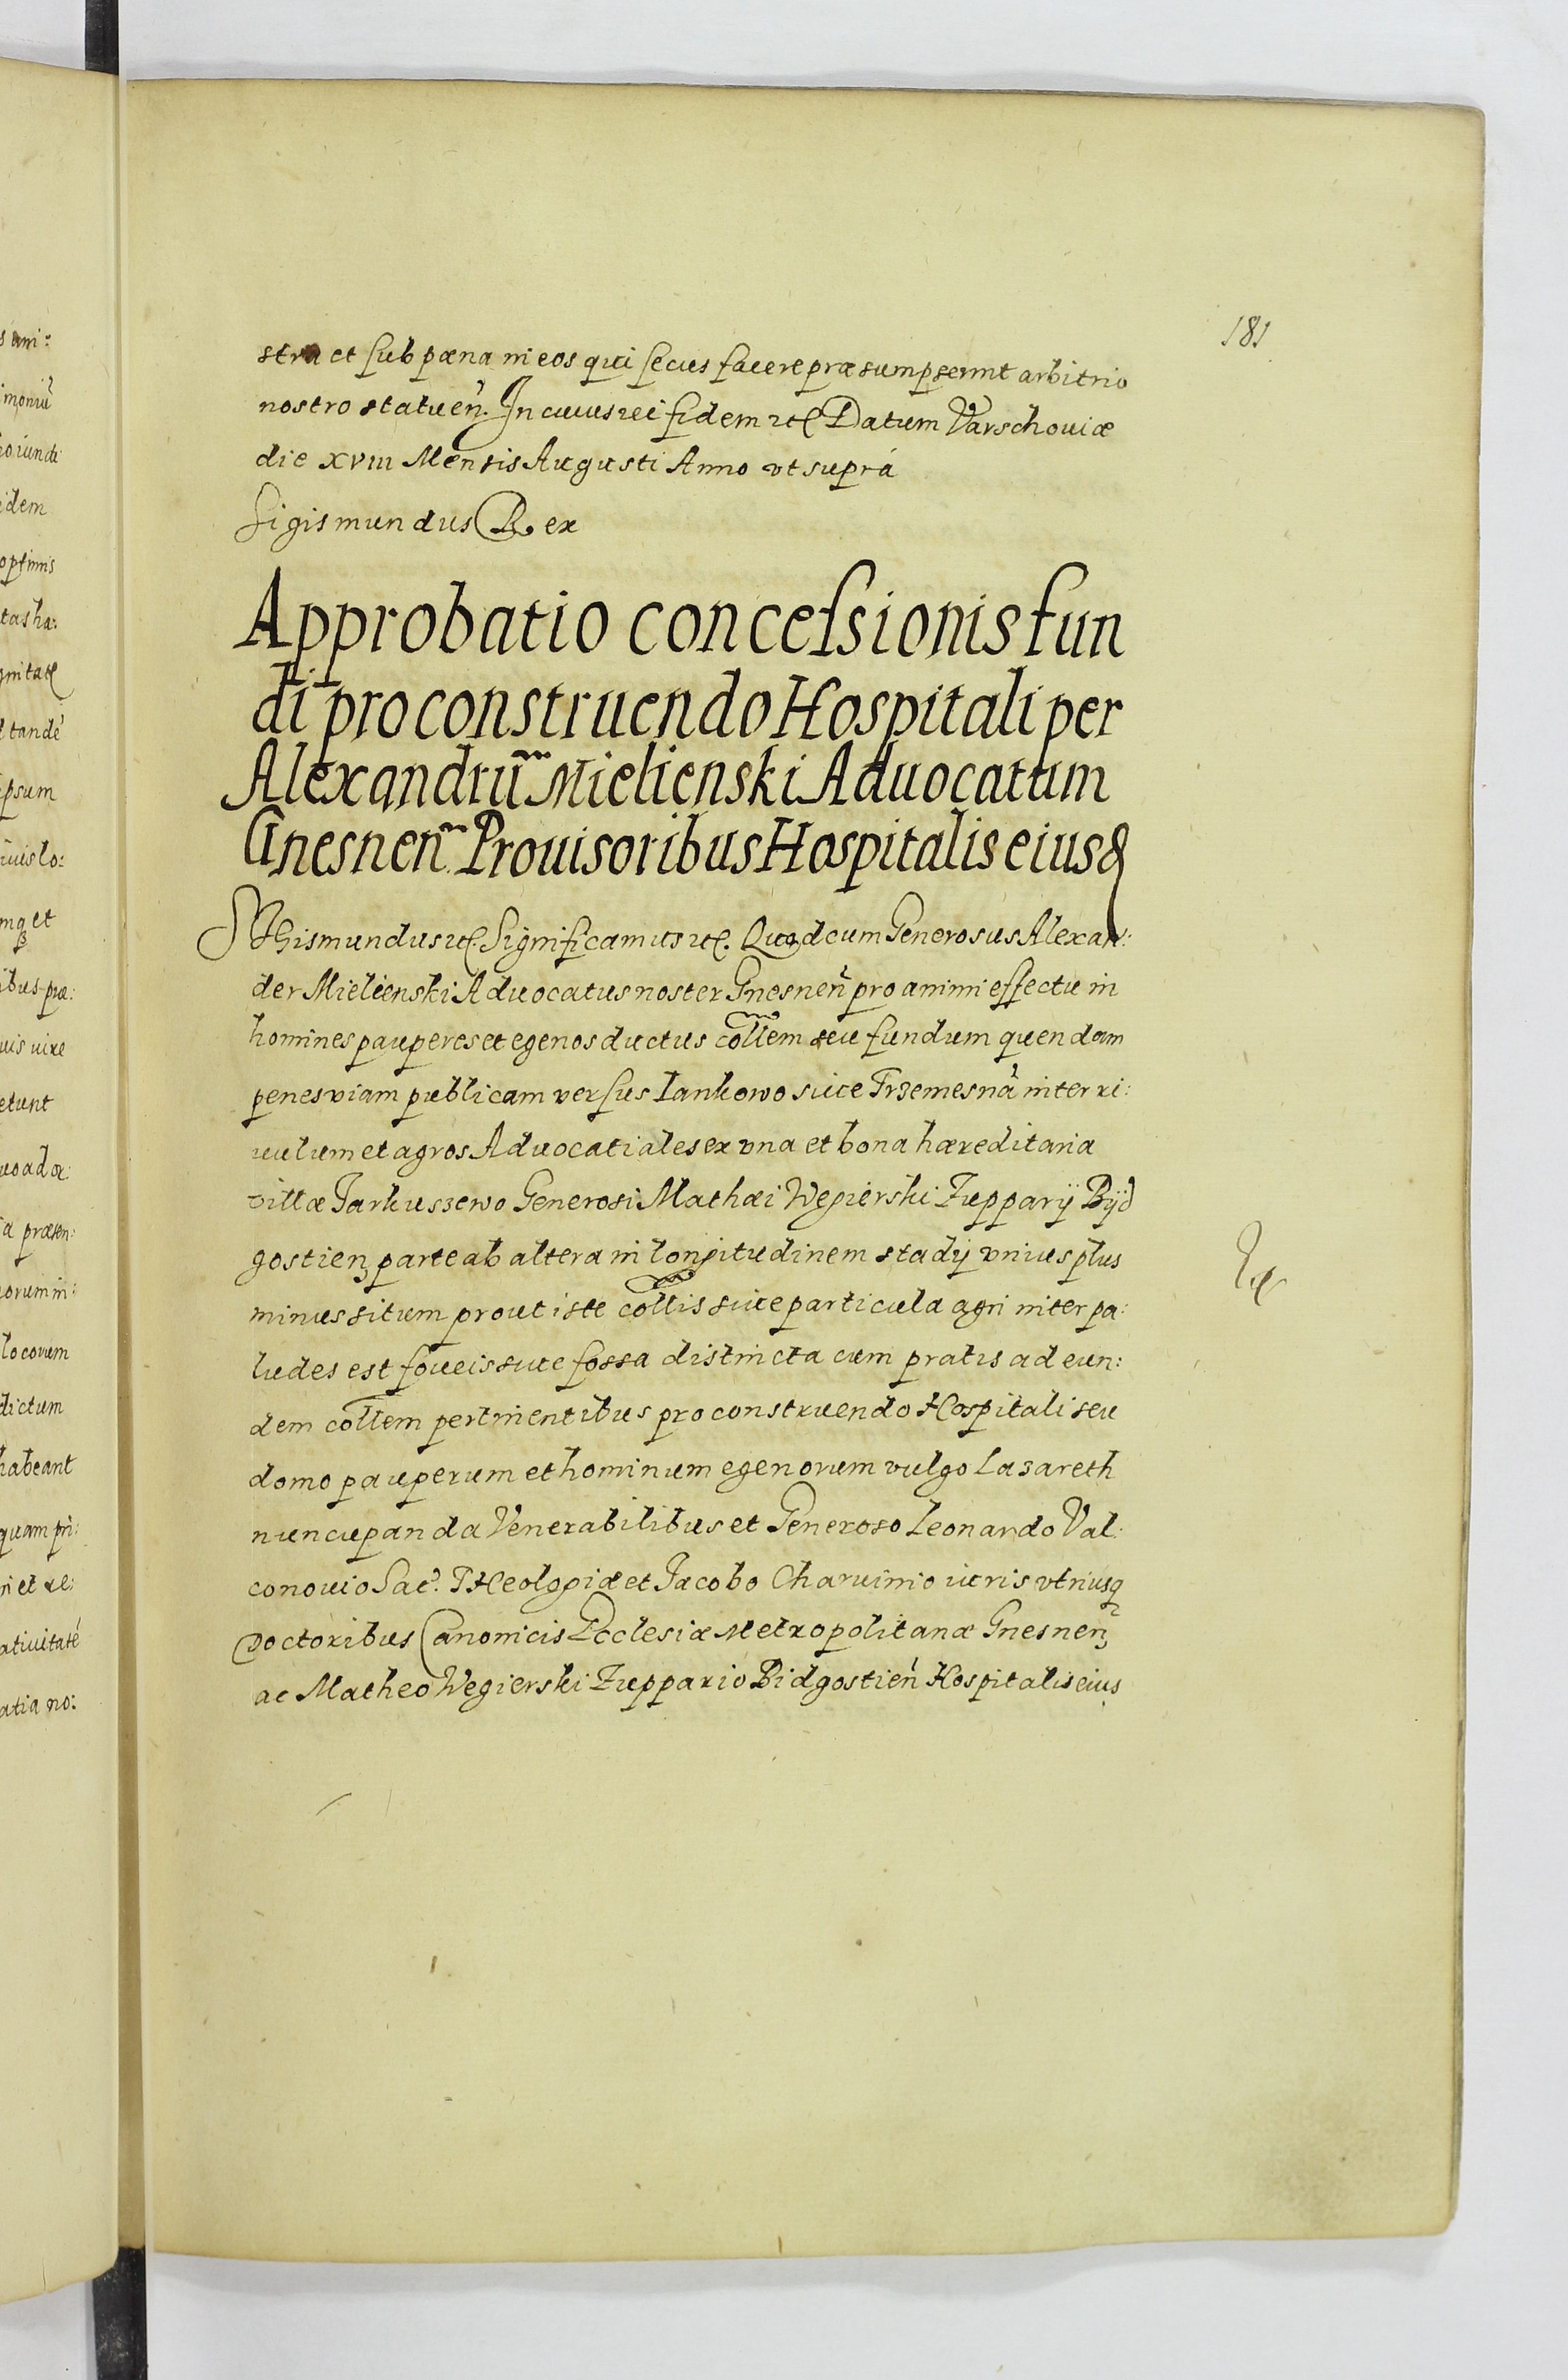 181
stra et sub pœna in eos qui secus facere præsumpserint arbitrio
nostro statueñ. In cuius rei fidem etc Datum Varschouiæ
die XVIII Mensis Augusti Anno vt suprà
Sigismundus Rex
Approbatio concessionis fun
di pro construendo Hospitali per
Alexandrũ Mielienski Aduocatum
Gnesneñ. Prouisoribus Hospitalis eiusd
Sigismundus etc. Significamus etc. Quod cum Generosus Alexan:
der Mielienski Aduocatus noster Gnesneñ pro animi effectu in
homines pauperes et egenos ductus collem seu fundum quendam
penes viam publicam versus Iankowo siue Trzemesnã inter ri:
uulum et agros Aduocatiales ex vna et bona hæreditaria
villæ Jarkuszewo Generosi Mathæi Wegierski Zupparij Bijd
gostien parte ab altera in longitudinem stadij vnius plus
minus situm prout iste collis siue particula agri inter pa:
ludes est foueis siue fossa distincta cum pratis ad eun:
dem collem pertinentibus pro construendo Hospitali seu
domo pauperum et hominum egenorum vulgo Lazareth
nuncupanda Venerabilibus et Generoso Leonardo Val:
conouio Sac. THeologiæ et Jacobo Charuinio iuris vtriusq
Doctoribus Canonicis Ecclesiæ Metropolitanæ Gnesneñ
ac Matheo Wegierski Zuppario Bidgostieñ Hospitalis eius